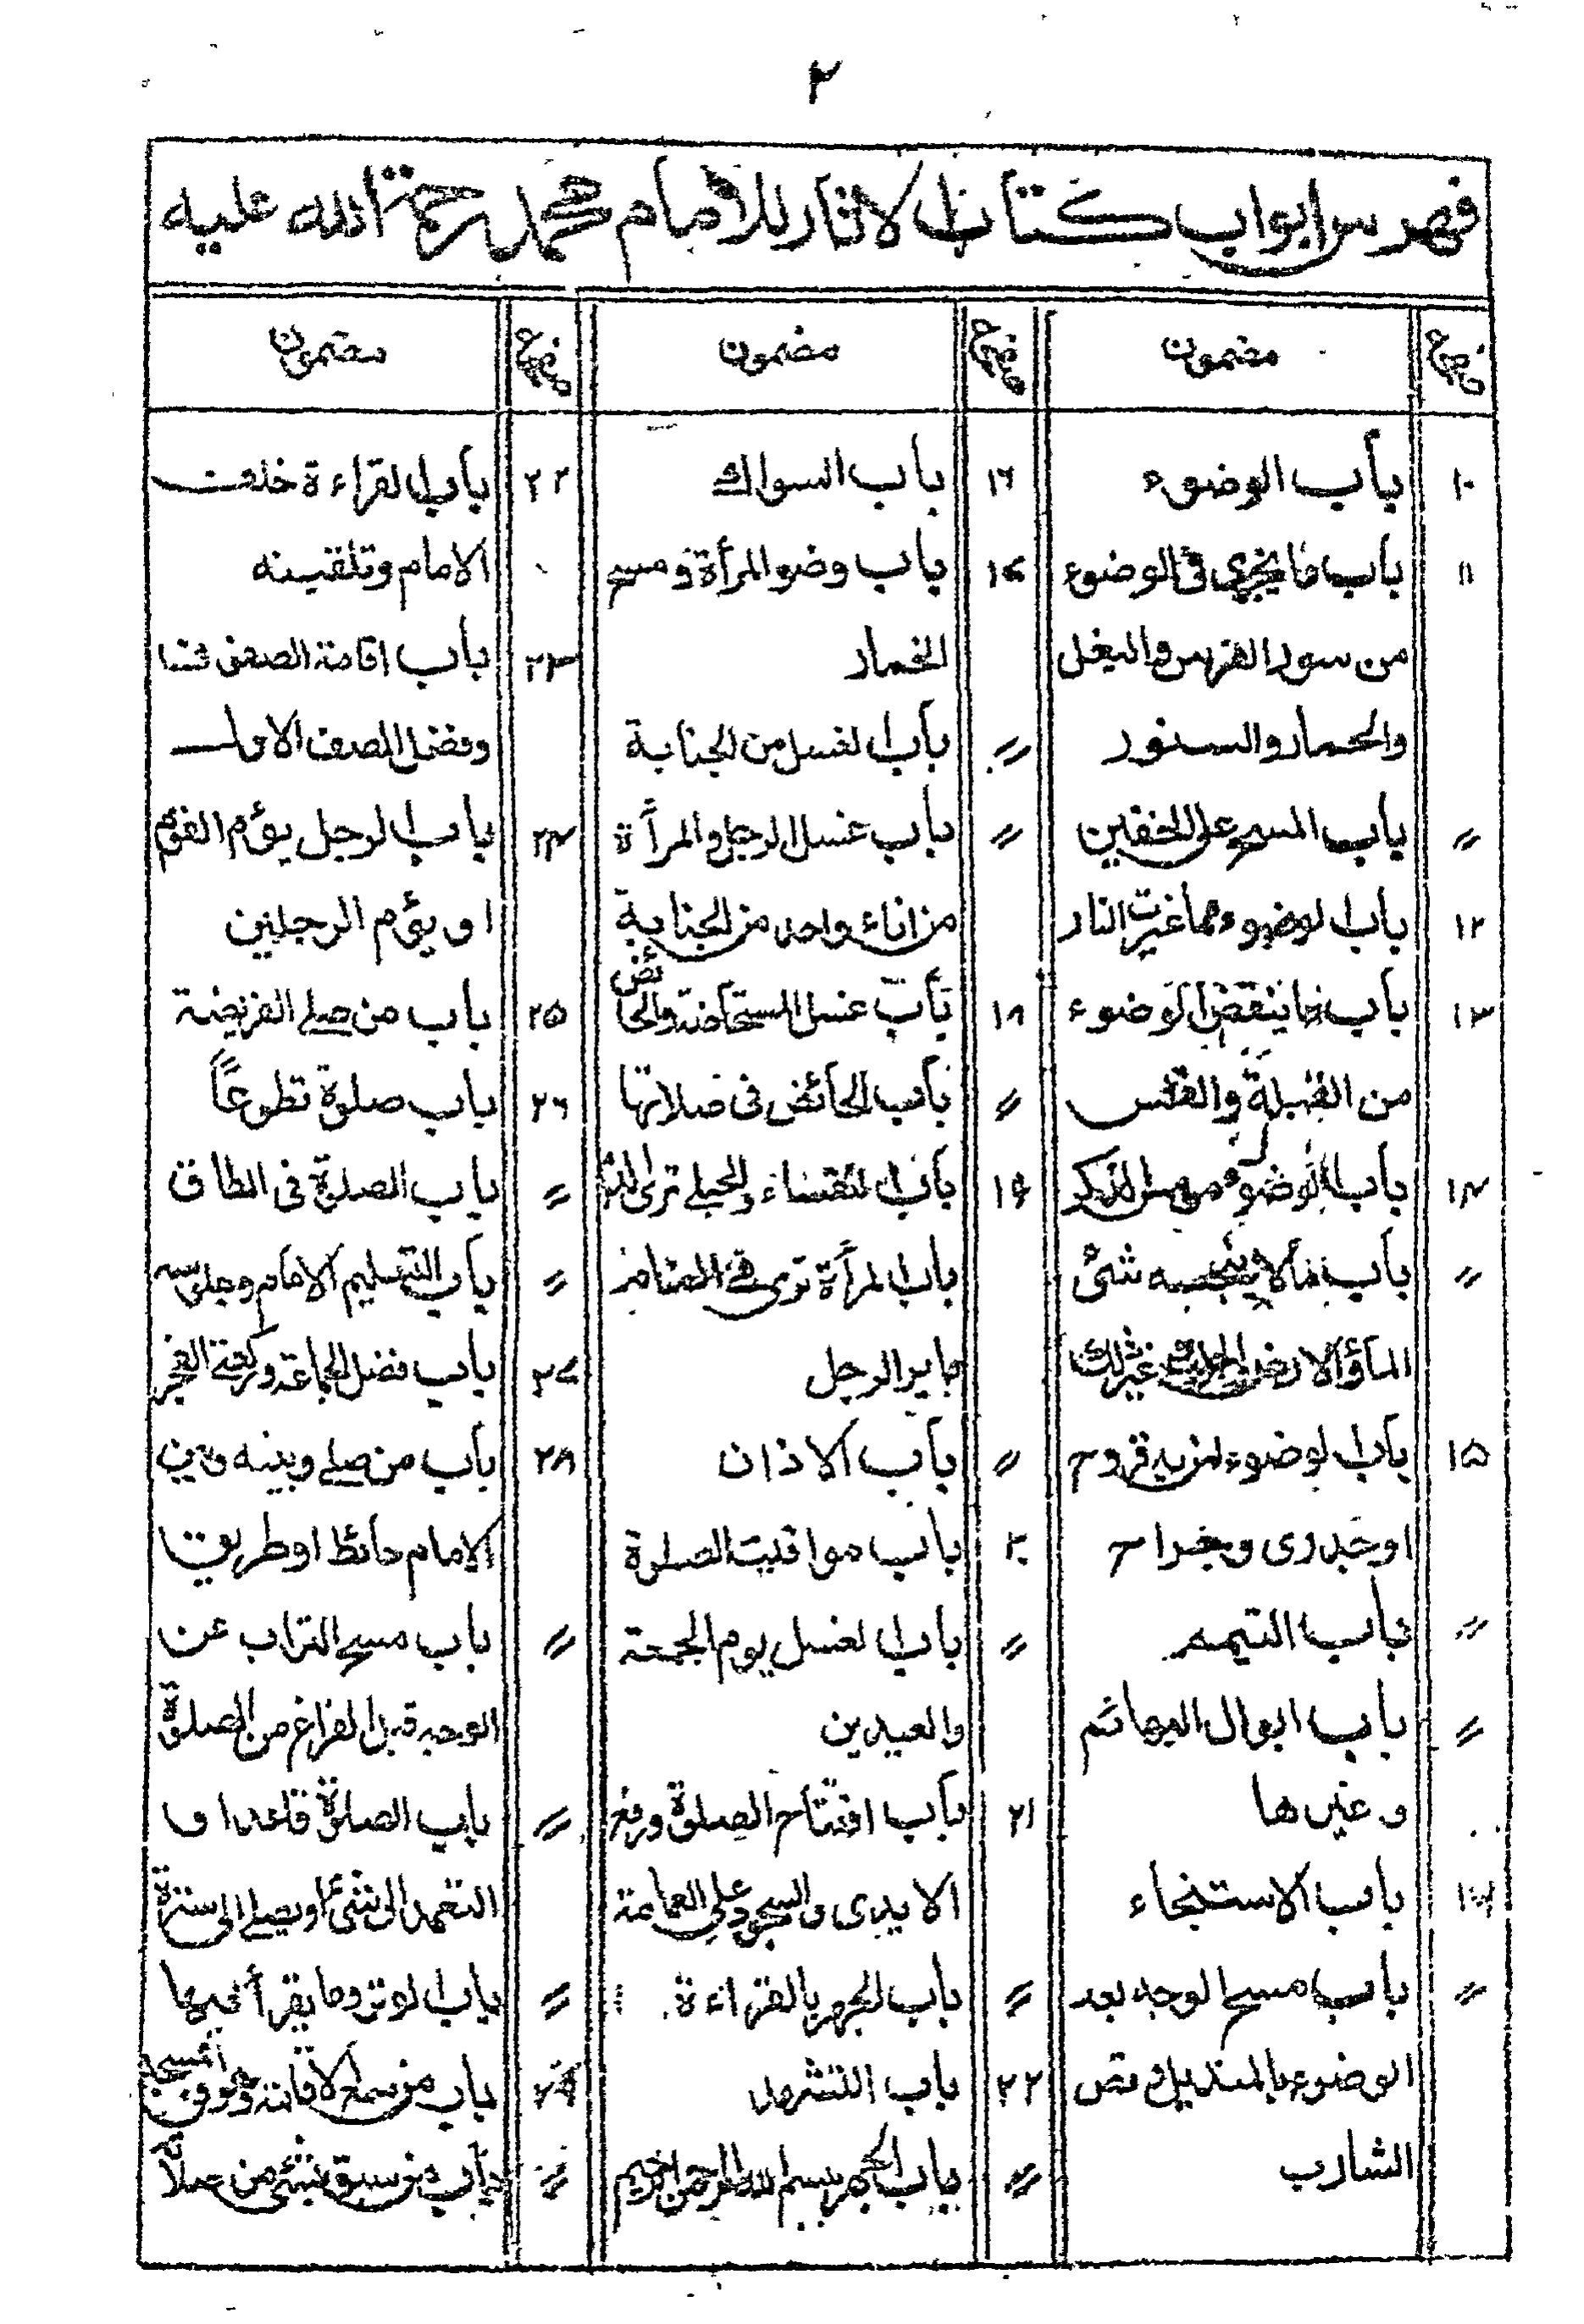 ٢
فهرس ابواب كتاب الاثار للامام محمد رحمة الله عليه
صفحہ
مضمون
١٠ باب الوضوء
١١ باب ما يجزى فى الوضوء
من سور الفرس والبغل
والحمار والسنور
〃 باب المسح على الخفين
١٢ باب الوضوء مما غيرت النار
١٣ باب ما ينقض الوضوء
من القبلة والقلس
١٤ باب الوضوء من مس الذكر
〃 باب ما لا ينجسه شئ
الماؤ الارض والجنب وغير ذلك
١٥ باب الوضوء لمن به قروح
او جدرى و جراح
〃 باب التيمم
〃 باب ابوال البهائم
و غيرها
١٦ باب الاستنجاء
〃 باب مسح الوجه بعد
الوضوء بالمنديل و قص
الشارب
صفحہ
مضمون
١٦ باب السواك
١٧ باب وضو المرأة و مسح
الخمار
〃 باب الغسل من الجنابة
〃 باب غسل الرجل والمرأة
من اناء واحد من الجنابة
١٨ باب غسل المستحاضة والحائض
〃 باب الحائض فى صلاتها
١٩ باب النفساء والحبلے ترى الدم
باب المرأة ترى فى المنام
ما يرا الرجل
〃 باب الاذان
٢٠ باب مواقيت الصلوة
〃 باب الغسل يوم الجمعة
والعيدين
٢١ باب افتتاح الصلوة ورفع
الايدى والسجود على العمامة
〃 باب الجهر بالقراءة
٢٢ باب التشهد
〃 باب الجهر بسم الله الرحمن الرحيم
صفحہ
مضمون
٢٢ باب القراءة خلف
الامام وتلقينه
٢٣ باب اقامة الصفوف
وفضل الصف الاول
٢٤ باب الرجل يؤم القوم
او يؤم الرجلين
٢٥ باب من صلے الفريضة
٢٦ باب صلوة تطوعاً
〃 باب الصلوة فى الطاق
〃 باب التسليم الامام وجلوسه
٢٧ باب فضل الجماعة وركعتے الفجر
٢٨ باب من صلے وبينه وبين
الامام حائط او طريق
〃 باب مسح التراب عن
الوجه قبل الفراغ من الصلوة
〃 باب الصلوة قاعدا و
التعمد الى شئ او يصلے الى سترة
〃 باب الوتر وما يقرأ فيها
٢٩ باب من سمع الاقامة وهو فى المسجد
〃 باب من سبق بشئ من صلاته